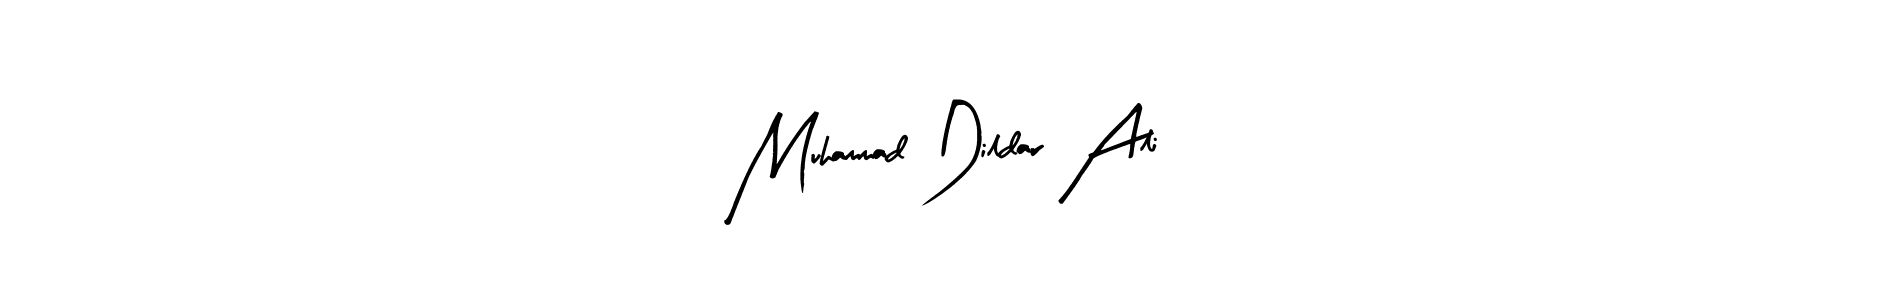 Muhammad Dildar Ali